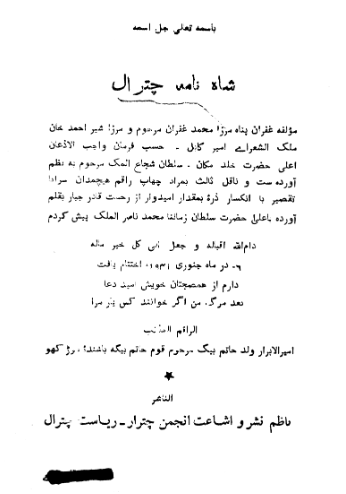 باسمه تعلی جل اسمه
شاه نامه چترال
مؤلفه غفران پناه مرزا محمد غفران مرحوم و مرزا شیر احمد خان
ملک الشعراے امیر کابل - حسب فرمان واجب الاذعان
اعلی حضرت خلد مکان - سلطان شجاع الملک مرحوم به نظم
آورده ست و ناقل ثالث بمراد چهاپ راقم هیچمدان سراپا
تقصیر با انکسار ذرهٔ بمقدار امیدوار از رحمت قادر جبار بقلم
آورده باعلی حضرت سلطان زماننا محمد ناصر الملک پیش کردم
دام‌الله اقباله و جعل کل خیر ماله
در ماه جنوری ۱۹۳۱ اختتام یافت
دارم از همصحبتان خویش امید دعا
بعد مرگ من اگر خوانند کس مرا
الراقم
امیرالابرار ولد حاتم بیگ مرحوم قوم حاتم بیگه باشنده کهو
الناشر
ناظم نشر و اشاعت انجمن چترار - ریاست چترال